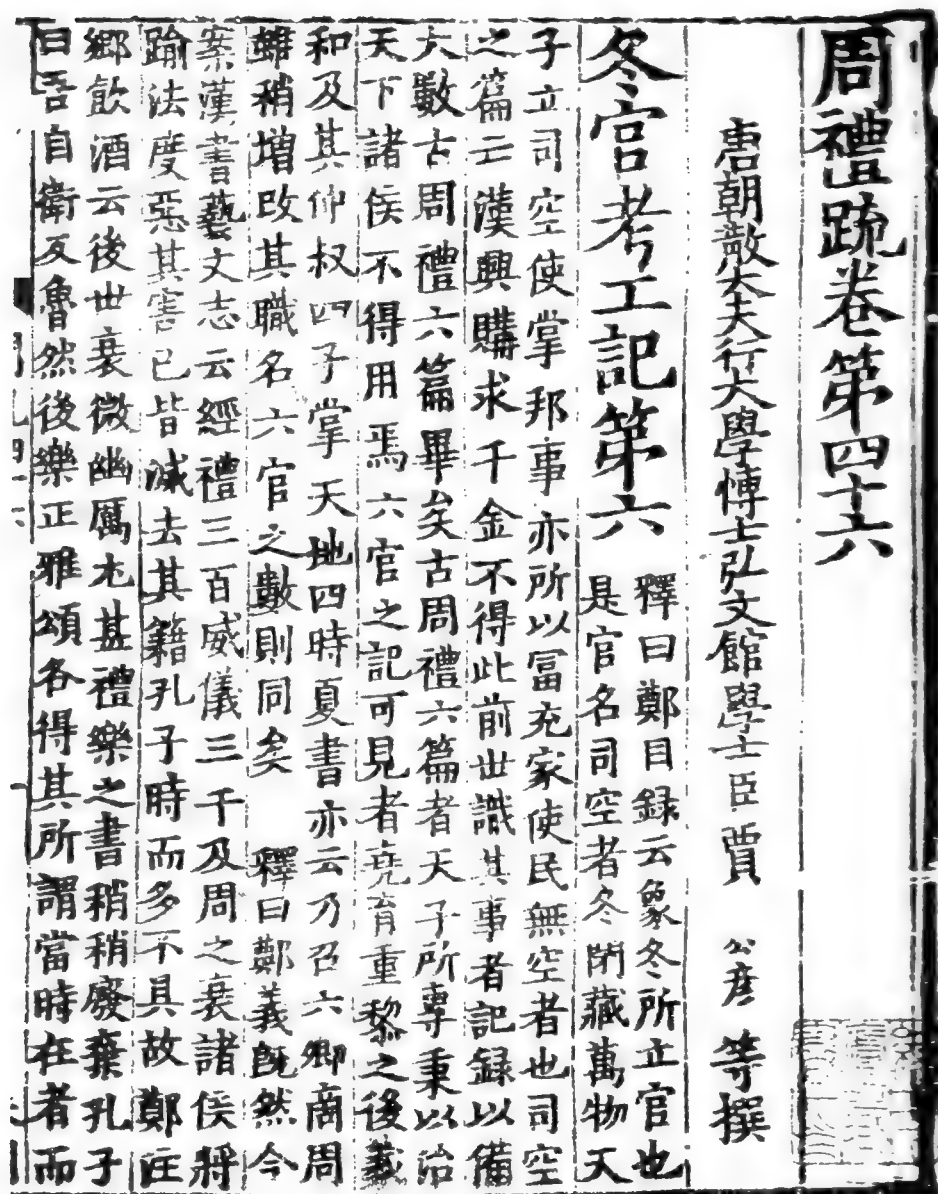 周禮疏卷第四十六
唐朝散大夫行大學博士弘文館學士臣賈 公彦 等撰
冬官考工記第六
釋曰鄭目録云象冬所立官也
是官名司空者冬閉藏萬物天
子立司空使掌邦事亦所以冨充家使民無空者也司空
之篇亡漢興購求千金不得此前世識其事者記録以備
大數古周禮六篇畢矣古周禮六篇者天子所專秉以治
天下諸侯不得用焉六官之記可見者堯育重黎之後羲
和及其仲叔四子掌天地四時夏書亦云乃召六卿商周
雖稍增改其職名六官之數則同矣 釋曰鄭義既然今
案漢書藝文志云經禮三百威儀三千及周之衰諸侯將
踰法度惡其害已皆滅去其籍孔子時而多不具故鄭注
鄉飲酒云後世衰微幽厲尤甚禮樂之書稍稍廢棄孔子
曰吾自衛反魯然後樂正雅頌各得其所謂當時在者而